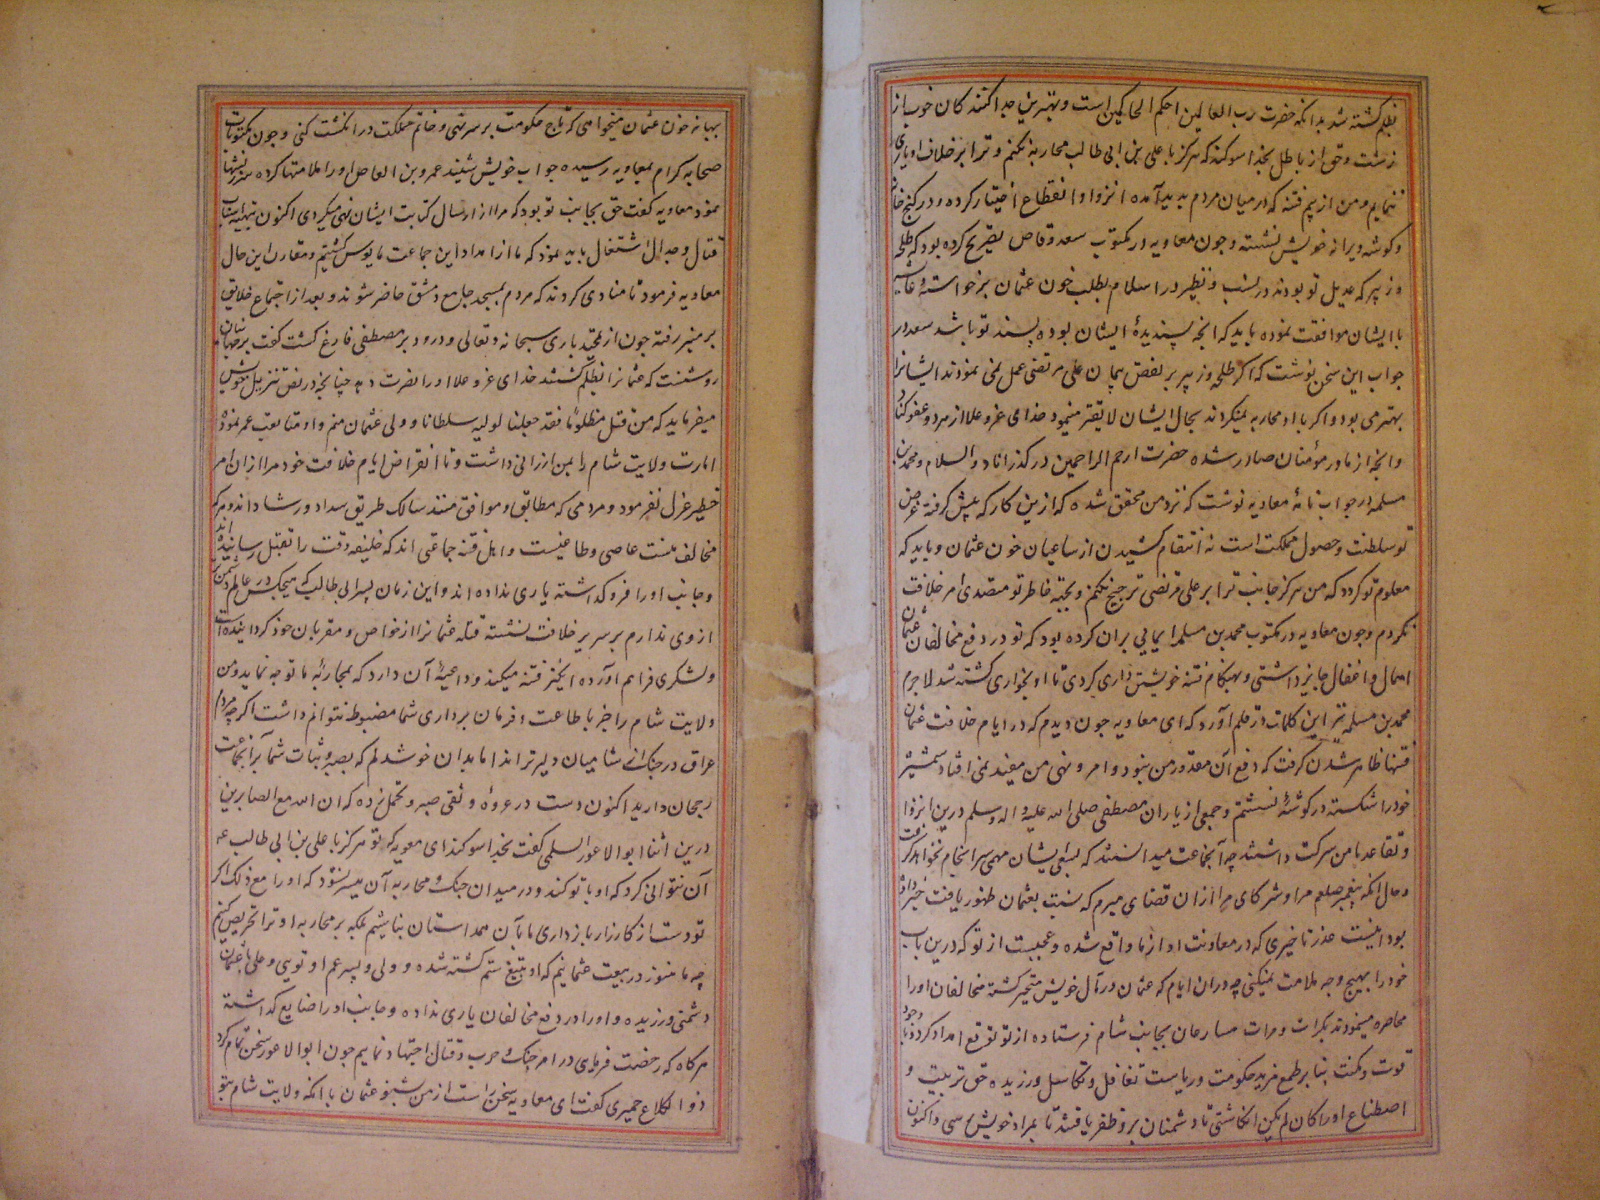 بظلم کشته شد بدانکه حضرت رب العالمین احکم الحاکمین است و بهترین جدا کنندکان خوب از
زشت و حق از باطل بخدا سوکند که هرکز با علی بن ابی طالب محاربه نکنم و ترا بر خلاف او یاری
ننمایم و من از بیم فتنه که در میان مردم بدید آمده انزوا و انقطاع اختیار کرده و در کنج خانه
و کوشه ویرانه خویش نشسته و جون معاویه در مکتوب سعد وقاص تصریح کرده بود که طلحه
و زبیر که عدیل تو بودند در نسب و نظیر در اسلام بطلب خون عثمان برخواستند و عایشه
با ایشان موافقت نموده باید که انچه پسندیدهٔ ایشان بوده پسند تو باشد سعد در
جواب این سخن نوشت که اکر طلحه و زبیر بر نقض پیمان علی مرتضی عمل نمی نمودند ایشانرا
بهتر می بود و اکر با او محاربه نمیکردند بحال ایشان لایقتر مینمود خدای عز و علا از مرد و عفو کناد
و انچه از مادر مؤمنان صادر شده حضرت ارحم الراحمین در کذراناد والسلام و محمد بن
مسلمه در جواب نامهٔ معاویه نوشت که نزد من محقق شده که ازین کار که پیش کرفتهٔ غرض
تو سلطنت و حصول مملکت است نه انتقام کشیدن از ساعیان خون عثمان و باید که
معلوم تو کردد که من هرکز جانب ترا بر علی مرتضی ترجیح نکنم و بجهة خاطر تو متصدی امر خلافت
نکردم و جون معاویه در مکتوب محمد بن مسلمه ایمایی بران کرده بود که تو در دفع مخالفان عثمان
اهمال و اغفال جایز داشتی و بهنکام فتنه خویشتن داری کردی تا او بخواری کشته شد لاجرم
محمد بن مسلمه نیز این کلمات در قلم آورد که ای معاویه جون دیدم که در ایام خلافت عثمان
فتنها ظاهر شدن کرفت که دفع آن مقدور من نبود و امر و نهی من مفید نمی افتاد شمشیر
خود را شکسته در کوشهٔ نشستم و جمعی از یاران مصطفی صلی الله علیه و اله وسلم درین انزوا
و تقاعد با من شرکت داشتند چه آنجماعت میدانستند که بسعی ایشان مهمی سرانجام نخواهد کرفت
و حال انکه پیغمبر صلعم مرا و شرکای مرا ازان قضای مبرم که نسبت بعثمان ظهور یافت خبر داده
بود اینست عذر تاخیری که در معاونت او از ما واقع شده و عجبست از تو که درین باب
خود را بهیچ وجه ملامت نمیکنی چه دران ایام که عثمان در مآل خویش متحیر کشته مخالفان او را
محاصره مینمودند بکرات و مرات مسارعان بجانب شام فرستاده از تو توقع امداد کرد و تو با وجود
قوت و مکنت بنابر طمع مزید حکومت و ریاست تغافل و تکاسل ورزیده حق تربیت و
اصطناع او را کان لم یکن انکاشتی تا دشمنان برو ظفر یافتند تا بمراد خویش رسی و اکنون
بهانه خون عثمان میخواهی که تاج حکومت بر سر نهی و خاتم مملکت در انکشت کنی و جون مکتوبات
صحابه کرام بمعاویه رسیده جواب خویش شنید عمرو بن العاص او را ملامتها کرده سرزنشها
نمود معاویه کفت حق بجانب تو بود که مرا از ارسال کتابت ایشان نهی میکردی اکنون بتهیه اسباب
قتال و جدال اشتغال باید نمود که ما از امداد این جماعت مایوس کشتیم و مقارن این حال
معاویه فرمود تا منادی کردند که مردم بمسجد جامع دمشق حاضر شوند و بعد از اجتماع خلایق
بر منبر رفته جون از تمجید باری سبحانه و تعالی و درود بر مصطفی فارغ کشت کفت بر جهانیان
روشنست که عثمانرا بظلم کشتند خدای عز و علا او را نصرت دهد چنانچه در نص تنزیل
میفرماید که من قتل مظلوماً فقد جعلنا لولیه سلطانا و ولی عثمان منم و او متابعت عمر نموده
امارت ولایت شام را بمن ارزانی داشت و تا انقراض ایام خلافت خود مرا ازان امر
خطیر عزل نفرمود و مردمی که مطابق و موافق منند سالک طریق سداد و رشاد اند و هرکه
مخالف منست عاصی و طاغیست و اهل فتنه جماعتی اند که خلیفه وقت را بقتل رسانیده اند
و جانب او را فرو کذاشته یاری نداده اند و این زمان پسر ابی طالب که هیچکس در عالم دشمن تر
از وی ندارم بر سریر خلافت نشسته قتله عثمانرا از خواص و مقربان خود کردانیده است
و لشکری فراهم آورده انکیز فتنه میکند و داعیهٔ آن دارد که بمحاربهٔ ما توجه نماید و من
ولایت شام را جز با طاعت و فرمان برداری شما مضبوط نتوانم داشت اکر چه مردم
عراق در جنک از شامیان دلیرتر اند اما بدان خوشدلم که بصبر و ثبات شما بر آنجماعت
رجحان دارید اکنون دست در عروهٔ وثقی صبر و تحمل زده که ان الله مع الصابرین
درین اثنا ابو الاعور السلمی کفت بخدا سوکند ای معویه که تو هرکز با علی بن ابی طالب
آن نتوانی کرد که او با تو کند و در میدان جنک و محاربه آن میسر نشود که او را مع ذلک اکر
تو دست از کارزار بازداری ما بآن همداستان نباشیم بلکه بر محاربه او ترا تحریص کنیم
چه ما هنوز در بیعت عثمانیم که او بتیغ ستم کشته شده و ولی و پسر عم او تویی و علی با عثمان
دشمنی ورزیده و او را در دفع مخالفان یاری نداده و جانب او را ضایع کذاشته
هرکاه که رخصت فرمای در امر جنک و حرب و قتال اجتهاد نماییم جون ابوالاعور سخن تمام کرد
ذوالکلاع حمیری کفت ای معاویه سخن راست از من بشنو عثمان با انکه ولایت شام بتو